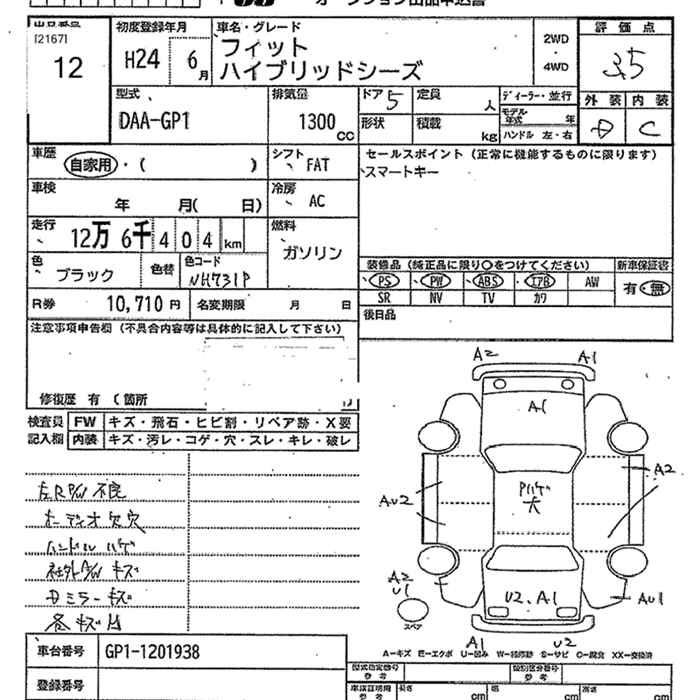 出品番号
[2167]
12
初度登録年月
H24 6月
車名・グレード
フィット
ハイブリッドシーズ
2WD
4WD
評価点
3.5
外装 内装
D C
型式
DAA-GP1
排気量
1300 CC
ドア 5
定員 人
形状
積載 kg
ディーラー・並行
モデル年式 年
ハンドル 左・右
車歴
自家用・( )
シフト FAT
セールスポイント (正常に機能するものに限ります)
スマートキー
車検
年 月( 日)
冷房 AC
走行
12万6千404km
燃料
ガソリン
色
ブラック
色替
色コード
NH731P
装備品 (純正品に限り○をつけてください)
新車保証書
PS PW ABS エアB AW
有・無
SR NV TV カワ
R券 10,710円
名変期限 月 日
後日品
注意事項申告欄 (不具合内容等は具体的に記入して下さい)
修復歴 有 (箇所
検査員
記入欄
FW キズ・飛石・ヒビ割・リペア跡・X要
内装 キズ・汚レ・コゲ・穴・スレ・キレ・破レ
左R P/W 不良
オーディオ欠穴
ハンドル ハゲ
社外A/W キズ
Dミラーキズ
各キズ凹
A2 A1
A1
A2
Pハゲ
大
AU2
A2
U1
スペア
U2、A1
AU1
A1 U2
A=キズ E=エクボ U=凹み W=補修跡 S=サビ C=腐食 XX=交換済
車台番号 GP1-1201938
登録番号
型式指定番号
参考
類別区分番号
車検証明用
参考
長さ cm
幅 cm
高さ cm